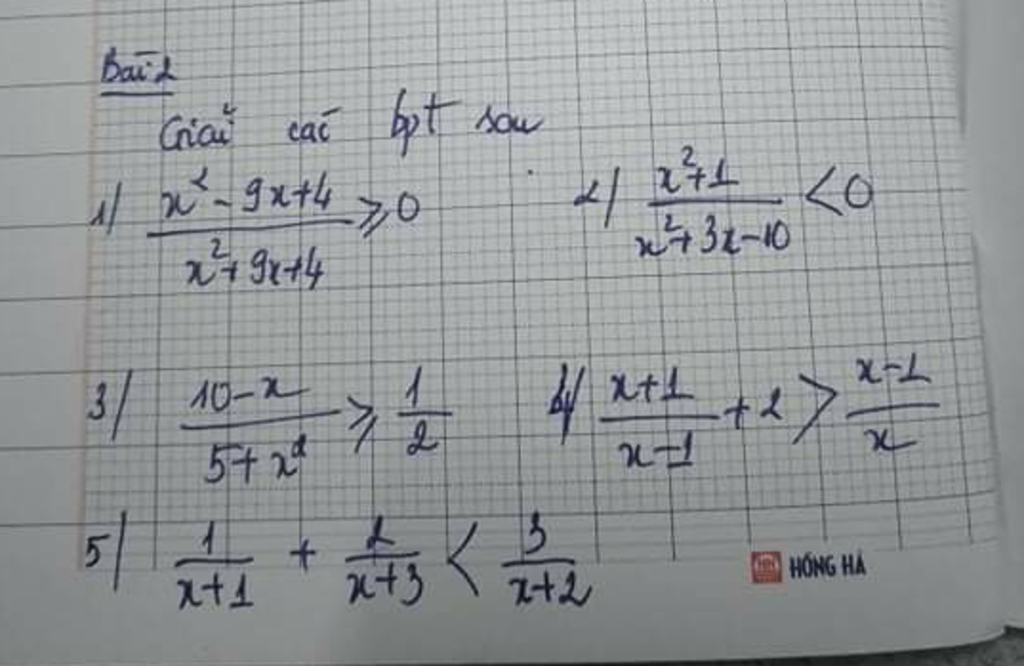 Bài 2
Giải các bpt sau
1/ (x² - 9x+4)/(x²+9x+4) ⩾ 0 2/ (x²+1)/(x²+3x-10) < 0
3/ (10-x)/(5+x²) ⩾ 1/2 4/ (x+1)/(x-1) + 2 > (x-1)/x
5/ 1/(x+1) + 2/(x+3) < 3/(x+2)
HỒNG HÀ